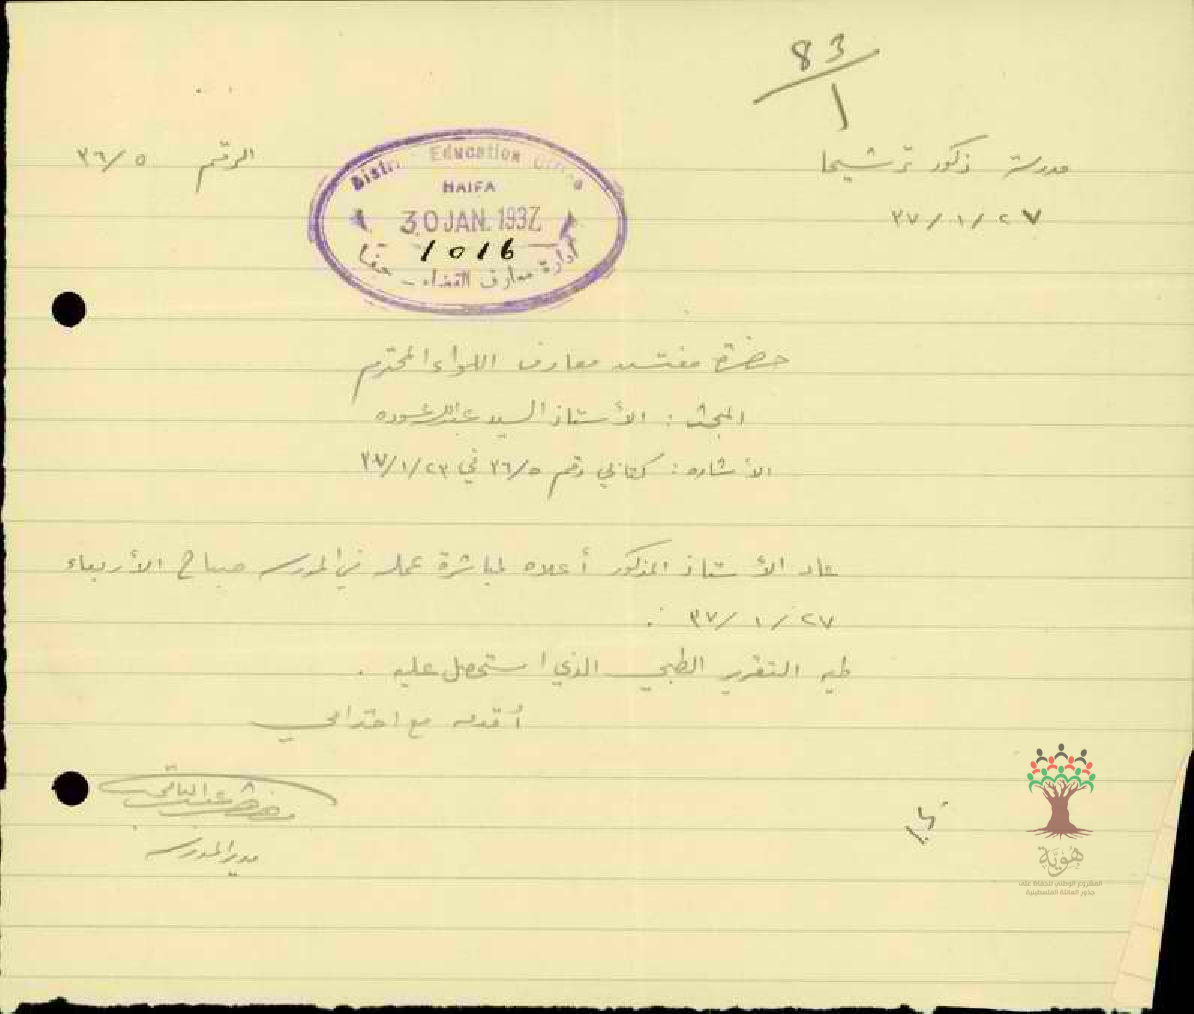 83
1
مدرسة ذكور ترشيحا
الرقم ٣٦/٥
٣٧/١/٢٧
District Education Office
HAIFA
30 JAN. 1937
1016
ادارة معارف القضاء - حيفا
حضرة مفتش معارف اللواء المحترم
المبحث : الأستاذ السيد عبدالله عوده
الأشاره : كتابي رقم ٣٦/٥ في ٣٧/١/٢٣
عاد الأستاذ المذكور أعلاه لمباشرة عمله في المدرسه صباح الأربعاء
٣٧/١/٢٧ .
طيه التقرير الطبي الذي استحصل عليه .
أقدمه مع احترامي
عبد الباقي
مدير المدرسه
هُوِيَّة
المشروع الوطني للحفاظ على
جذور العائلة الفلسطينية